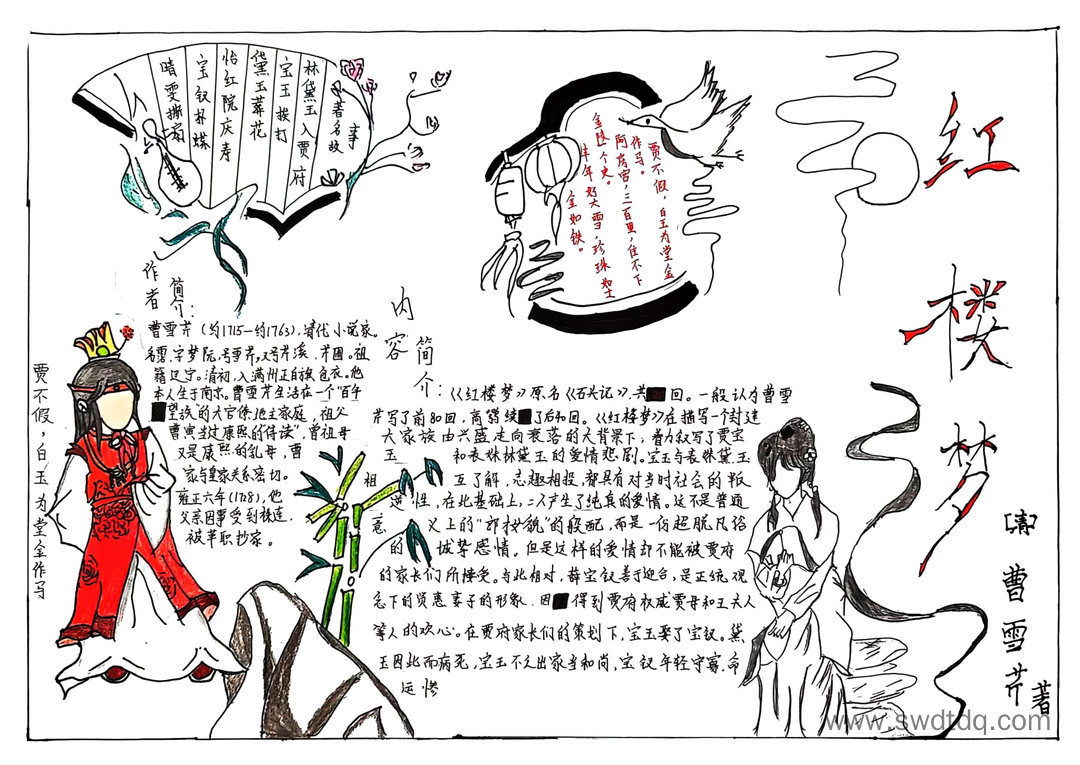 红楼梦
[清]曹雪芹著
著名故事
林黛玉入贾府
宝玉挨打
黛玉葬花
怡红院庆寿
宝钗扑蝶
晴雯撕扇
贾不假，白玉为堂金
作马。
阿房宫，三百里，住不下
金陵一个史。
丰年好大雪，珍珠如土
金如铁。
作者
简介：
曹雪芹（约1715—约1763），清代小说家。
名霑，字梦阮，号雪芹，又号芹溪、芹圃。祖
籍辽宁。清初，入满州正白旗包衣。他
本人生于南京。曹雪芹生活在一个"百年
望族"的大官僚地主家庭，祖父
曹寅当过康熙的侍读"，曾祖母
又是康熙的乳母，曹
家与皇家关系密切。
雍正六年（1728），他
父亲因事受到株连，
被革职抄家。
贾不假，白玉为堂金作马
内容
简介：
《红楼梦》原名《石头记》，共回。一般认为曹雪
芹写了前80回，高鹗续了后40回。《红楼梦》在描写一个封建
大家族由兴盛走向衰落的大背景下，着力叙写了贾宝
玉和表妹林黛玉的爱情悲剧。宝玉与表妹黛玉
相互了解，志趣相投，都具有对当时社会的叛
逆性，在此基础上，二人产生了纯真的爱情。这不是普通
意义上的"郎才女貌"的般配，而是一份超脱凡俗
的城挚感情。但是这样的爱情却不能被贾府
的家长们所接受。与此相对，薛宝钗善于迎合，是正统观
念下的贤惠妻子的形象，因得到贾府权威贾母和王夫人
等人的欢心。在贾府家长们的策划下，宝玉娶了宝钗。黛
玉因此而病死，宝玉不久出家当和尚，宝钗年轻守寡，命
运惨
www.swdtdq.com